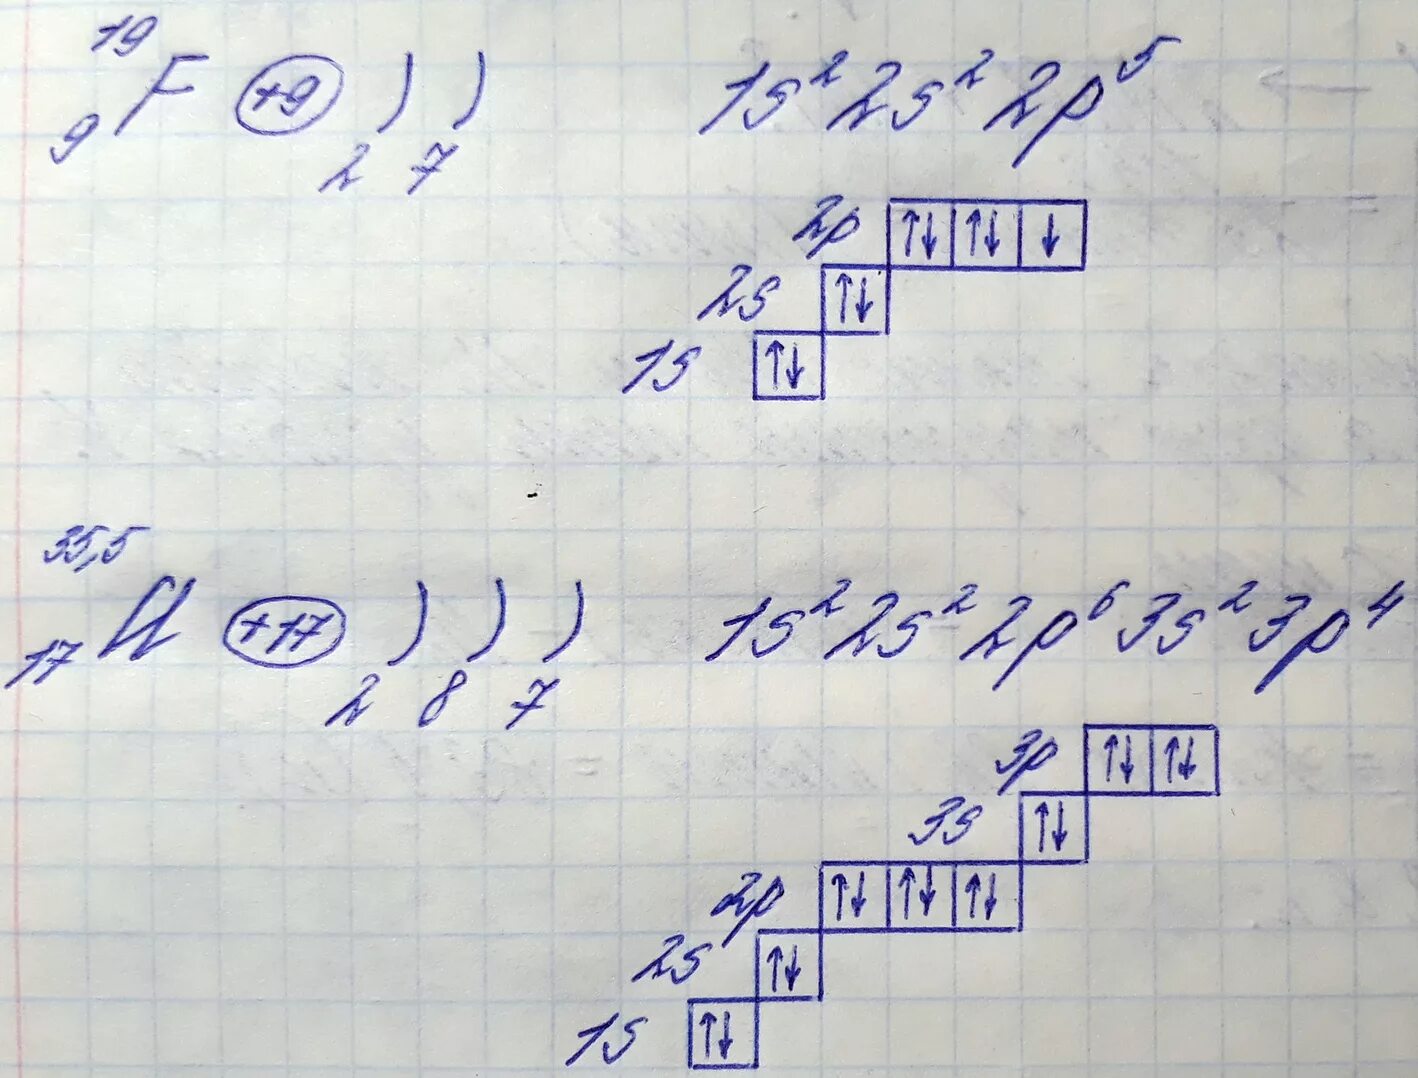 19
9 F +9 ) ) 1s² 2s² 2p⁵
2 7
2p ↑↓ ↑↓ ↓
2s ↑↓
1s ↑↓
35,5
17 Cl +17 ) ) ) 1s² 2s² 2p⁶ 3s² 3p⁴
2 8 7
3p ↑↓ ↑↓
3s ↑↓
2p ↑↓ ↑↓ ↑↓
2s ↑↓
1s ↑↓